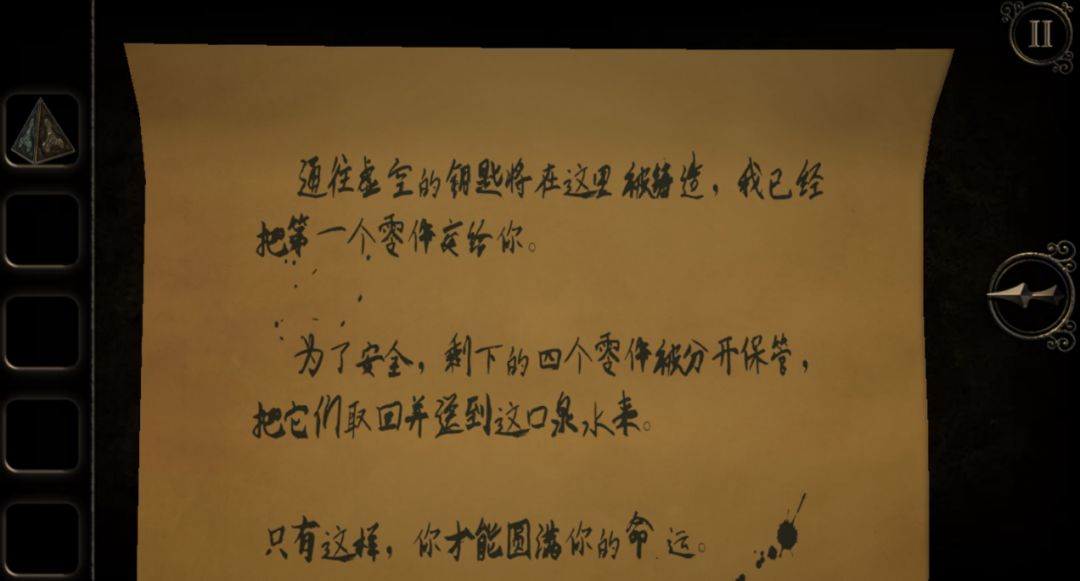 通往虚空的钥匙将在这里被铸造，我已经
把第一个零件交给你。
为了安全，剩下的四个零件被分开保管，
把它们取回并送到这口泉水来。
只有这样，你才能圆满你的命运。